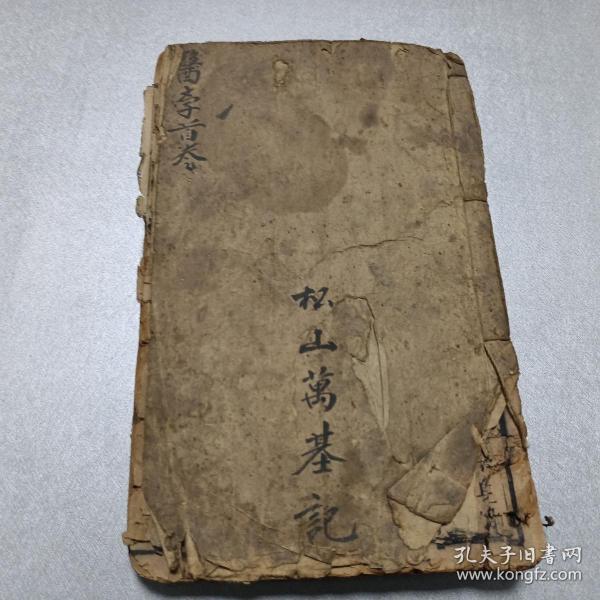 醫李首卷
松山萬基記
孔夫子旧書网
www.kongfz.com